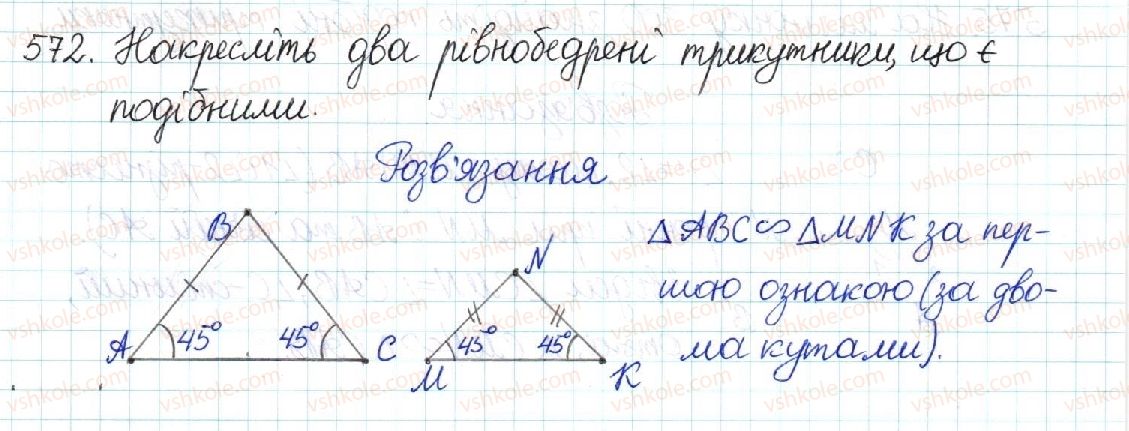 572. Накресліть два рівнобедрені трикутники, що є
подібними.
Розв'язання
B
N
A 45° 45° C
M 45 45° K
△ABC ∽ △MNK за пер-
шою ознакою (за дво-
ма кутами).
vshkole.com